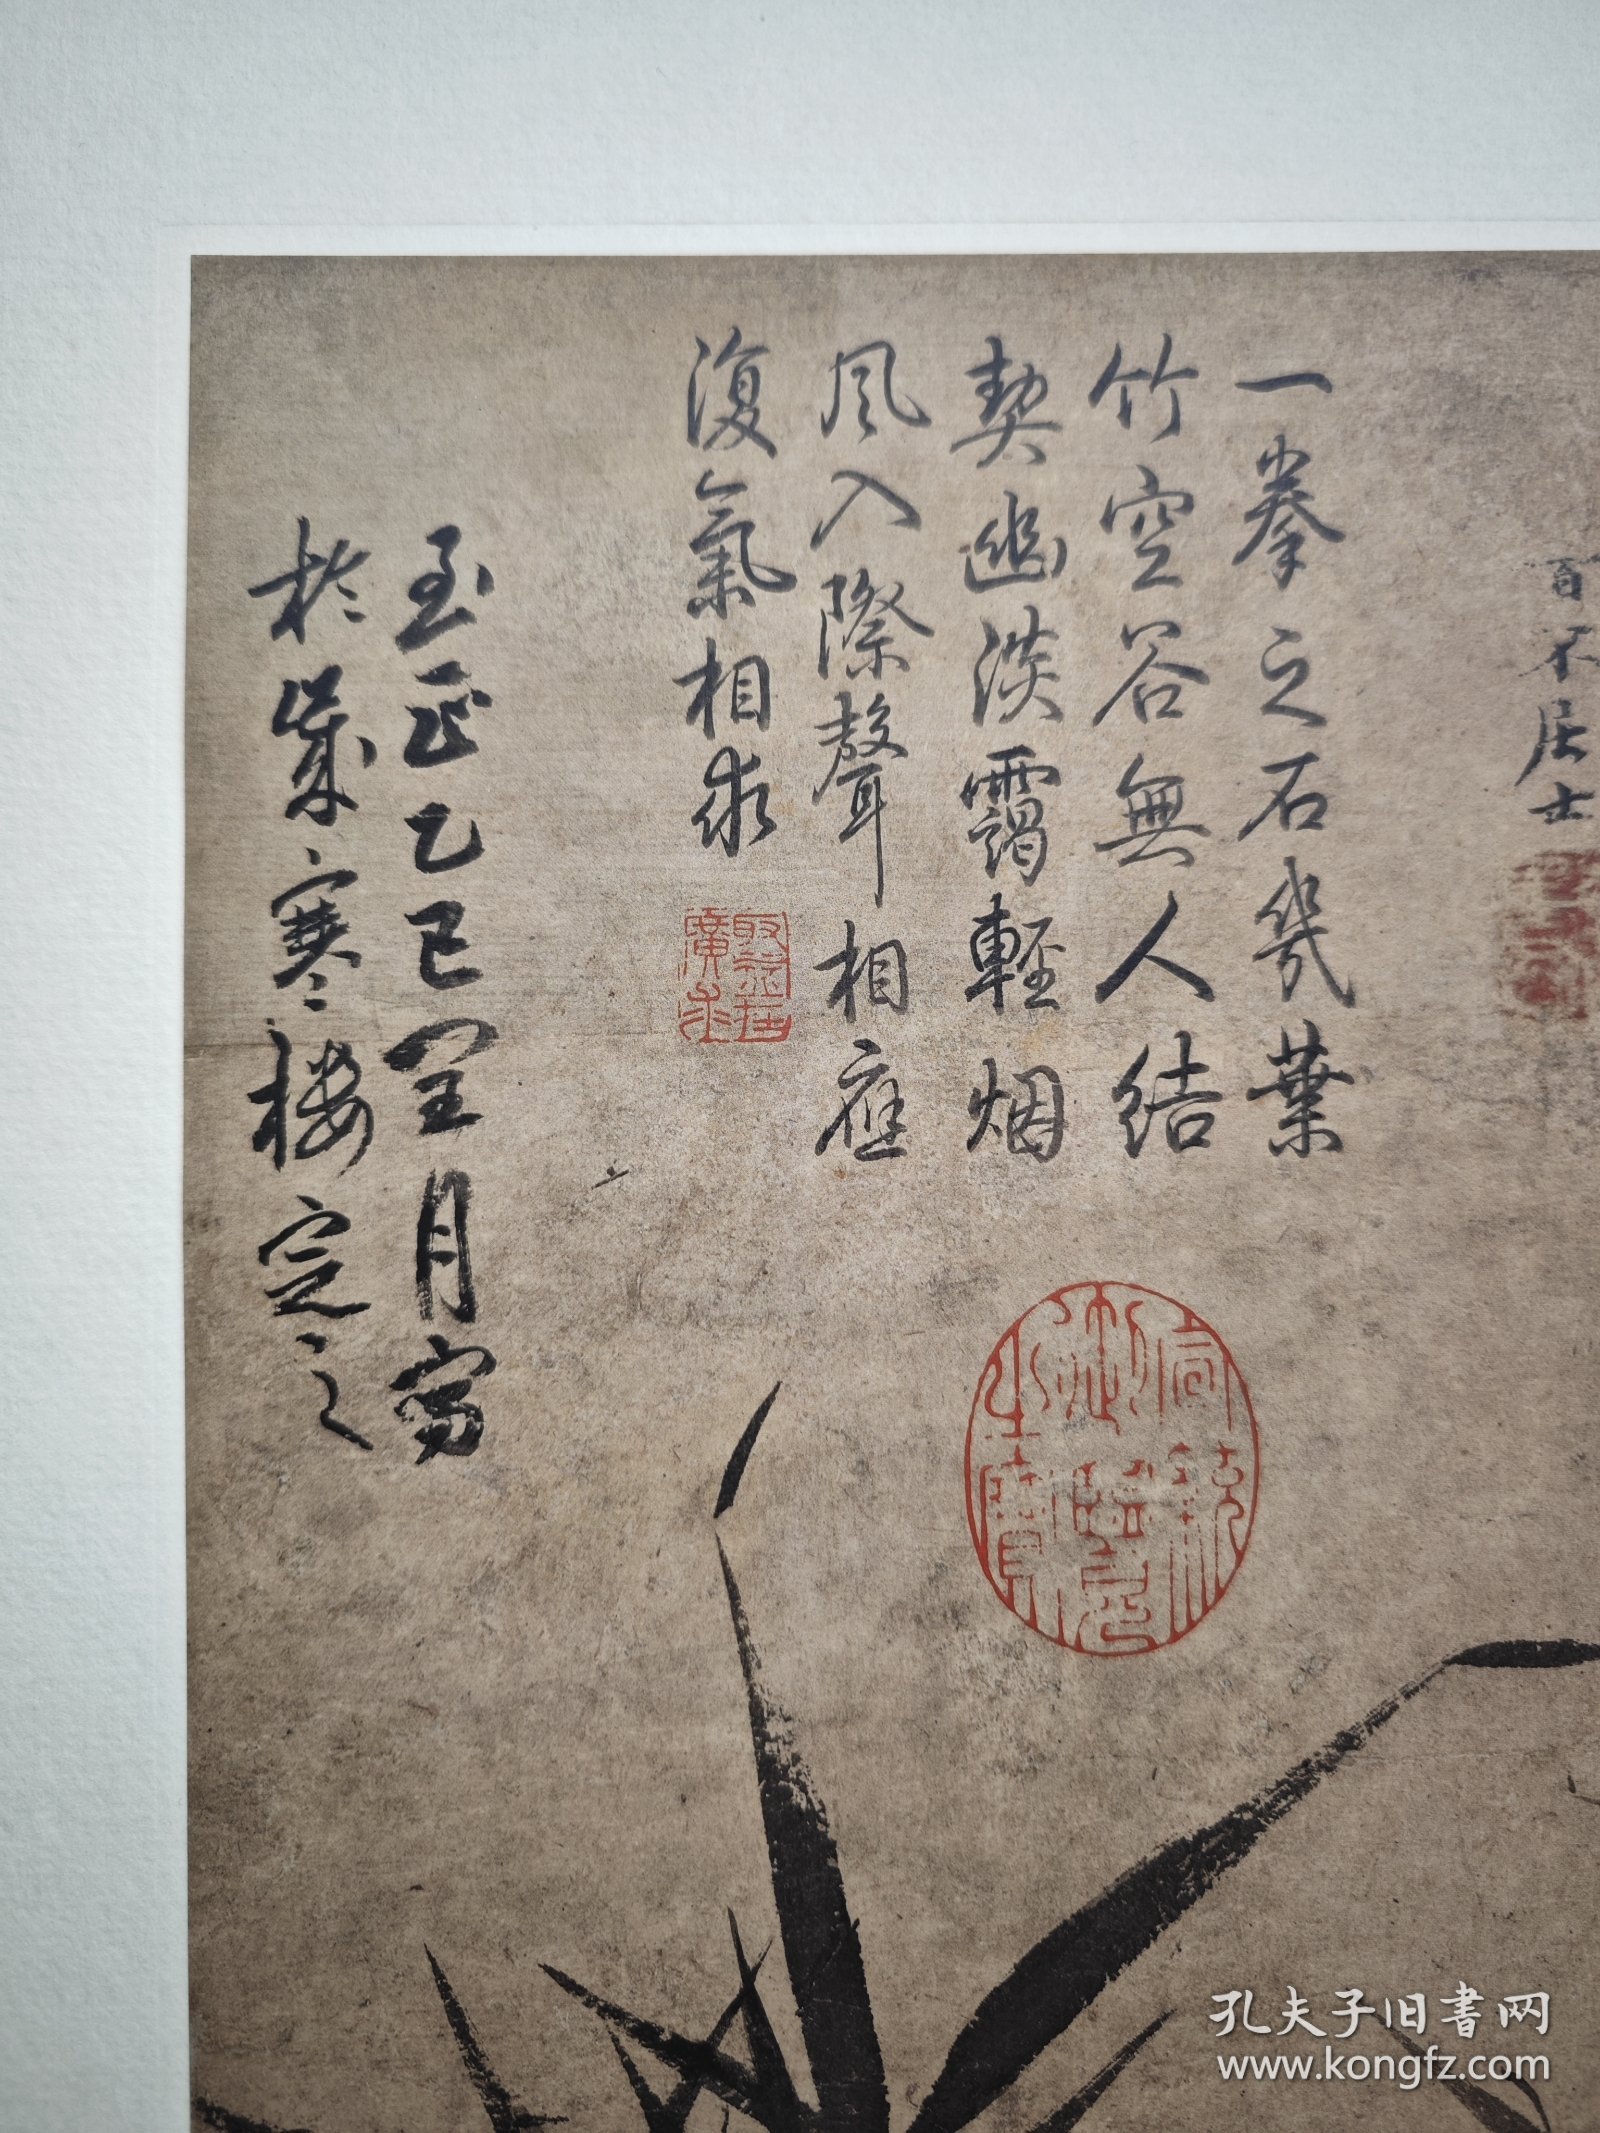 百不居士
一拳之石幾葉
竹空谷無人結
契幽淡靄輕烟
風入際聲相應
復氣相求
至正乙巳閏月寫
於歲寒樓定之
孔夫子旧书网
www.kongfz.com